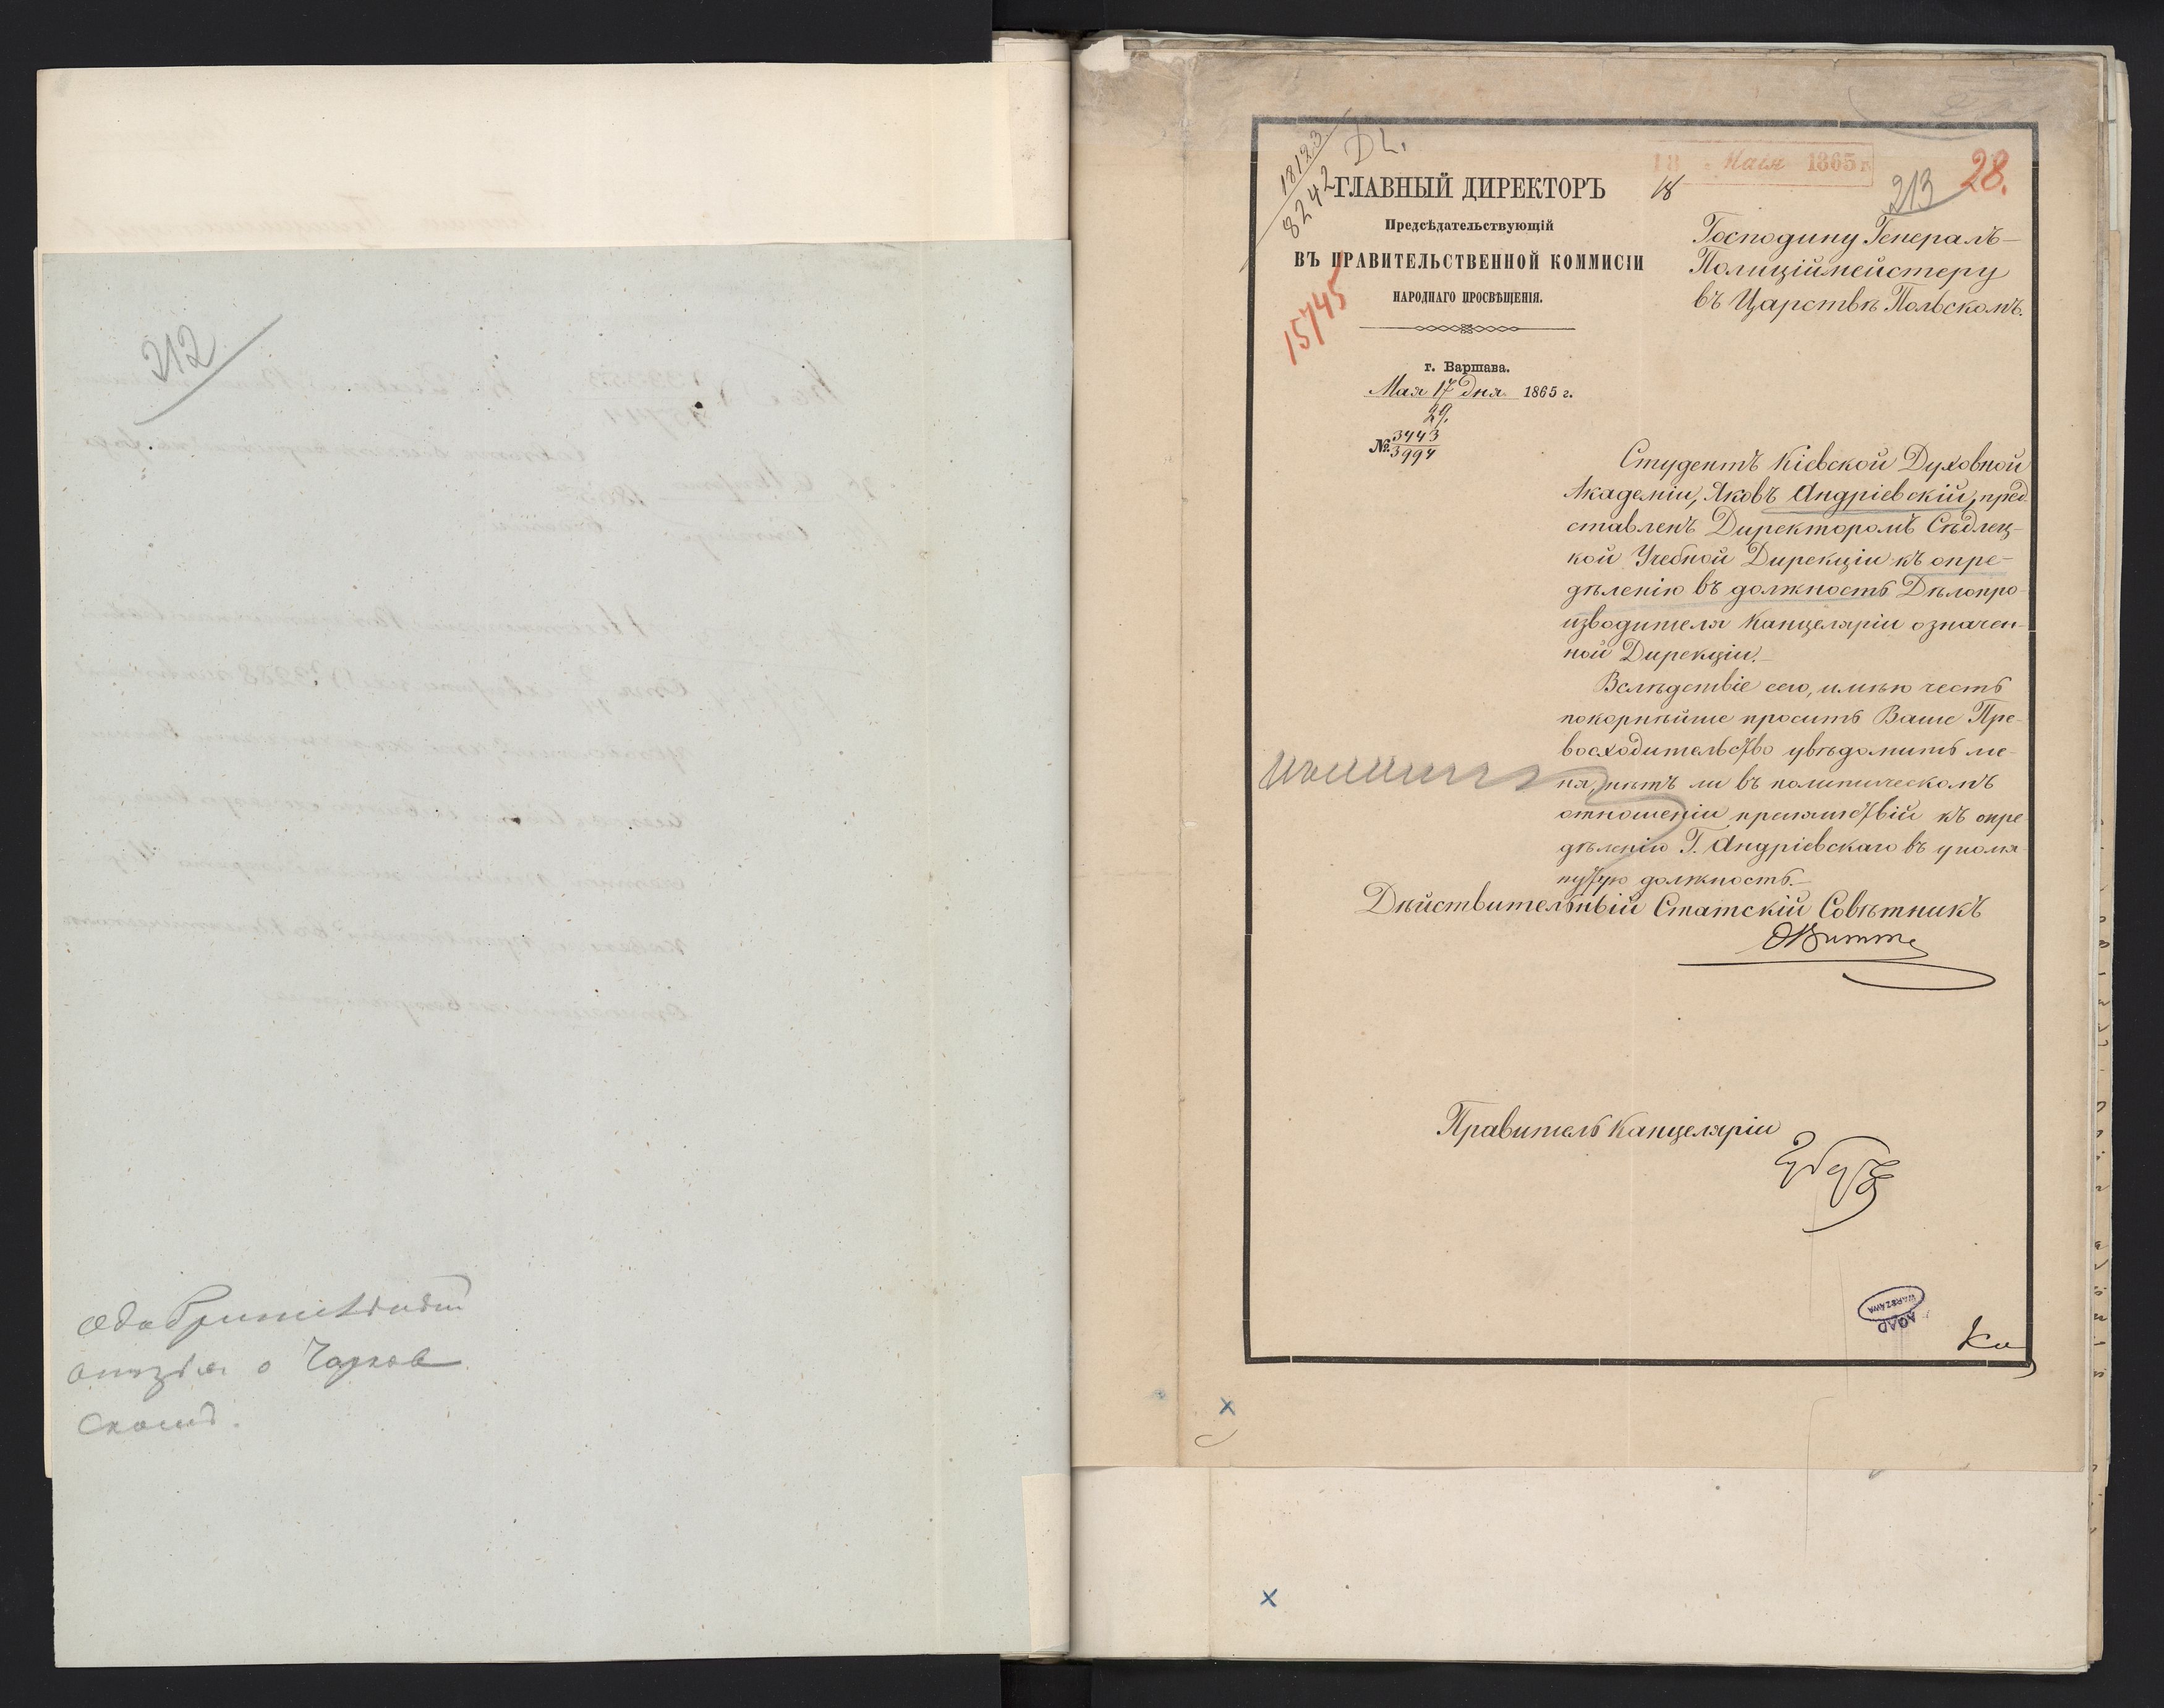 212
18123
8242
ГЛАВНЫЙ ДИРЕКТОРЪ
Предсѣдательствующій
ВЪ ПРАВИТЕЛЬСТВЕННОЙ КОММИСІИ
НАРОДНАГО ПРОСВѢЩЕНІЯ.
15745
г. Варшава.
Мая 17 дня 1865 г.
29.
№ 3443
3994
18 Мая 1865 г.
18
213
28.
Господину Генералъ-
Полиціймейстеру
въ Царствѣ Польскомъ.
Студентъ Кіевской Духовной
Академіи, Яковъ Андріевскій, пред-
ставленъ Директоромъ Сѣдлец-
кой Учебной Дирекціи къ опре-
дѣленію въ должность Дѣлопро-
изводителя Канцеляріи означен-
ной Дирекціи.
Вслѣдствіе сего, имѣю честь
покорнѣйше просить Ваше Пре-
восходительство увѣдомить ме-
ня, нѣтъ ли въ политическомъ
отношеніи препятствій къ опре-
дѣленію Г. Андріевскаго въ упомя-
нутую должность.
Дѣйствительный Статскій Совѣтникъ
ѲВитте
Правитель Канцеляріи
AGAD
WARSZAWA